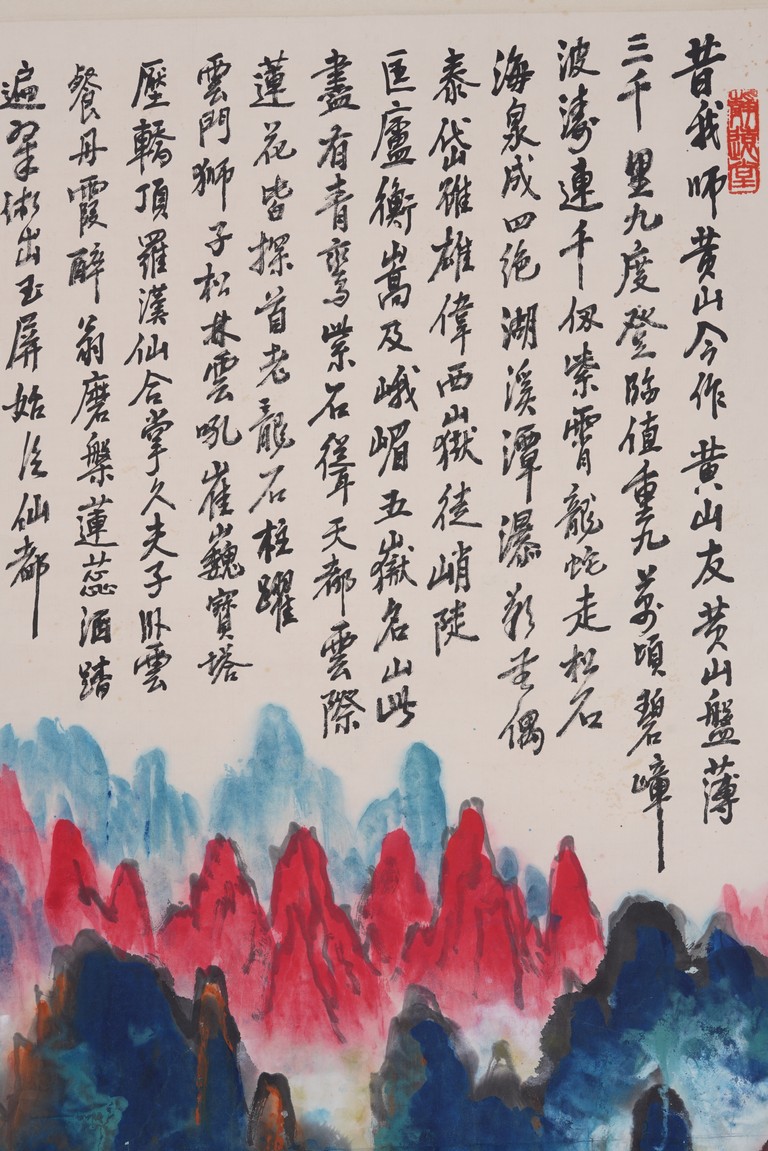 靜遠堂
昔我師黄山今作黄山友黄山盤薄
三千里九度登臨值重九萬頃碧嶂
波濤連千仞紫霄龍蛇走松石
海泉成四絶湖溪潭瀑無偶
泰岱雖雄偉西嶽徒峭陡
匡廬衡嵩及峨嵋五嶽名山此
盡有青鸞紫石聳天都雲際
蓮花皆探首老龍石柱躍
雲門獅子松林雲吼崔巍寶塔
壓轎頂羅漢仙合掌久夫子卧雲
餐丹霞醉翁磨槃蓮蕊酒踏
遍翠微出玉屏始信仙都